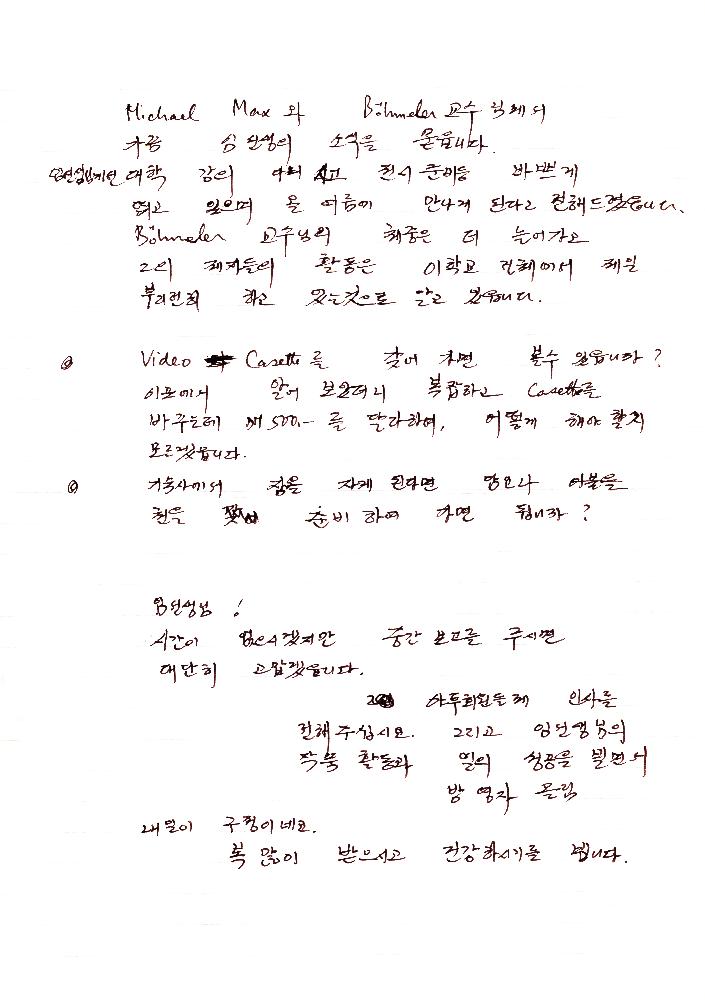 Michael Max 와 Böhmeler 교수님께서
가끔 임선생의 소식을 묻습니다.
대학 강의 전시준비등 바쁘게
있으며 올 여름에 만나게 된다고 전해드렸습니다.
Böhmeler 교수님의 체중은 더 늘어가고
그의 제자들의 활동은 이학교 전체에서 제일
부지런히 하고 있는것으로 알고 있습니다.
Video Casette를 갖어 가면 볼수 있읍니까?
이곳에서 알어 보았더니 복잡하고 Casette를
바꾸는데 500.- 를 달라하여, 어떻게 해야 할지
모르겠읍니다.
기숙사에서 잠을 자게 된다면 담요나 이불을
준비하여 가면 됩니까?
임선생님!
시간이 없으시겠지만 중간 보고를 주시면
대단히 고맙겠읍니다.
야투회원들께 인사를
전해주십시요. 그리고 임선생님의
작품 활동과 일의 성공을 빌면서
방영자 올림
내일이 구정이네요.
복 많이 받으시고 건강하시기를 빕니다.